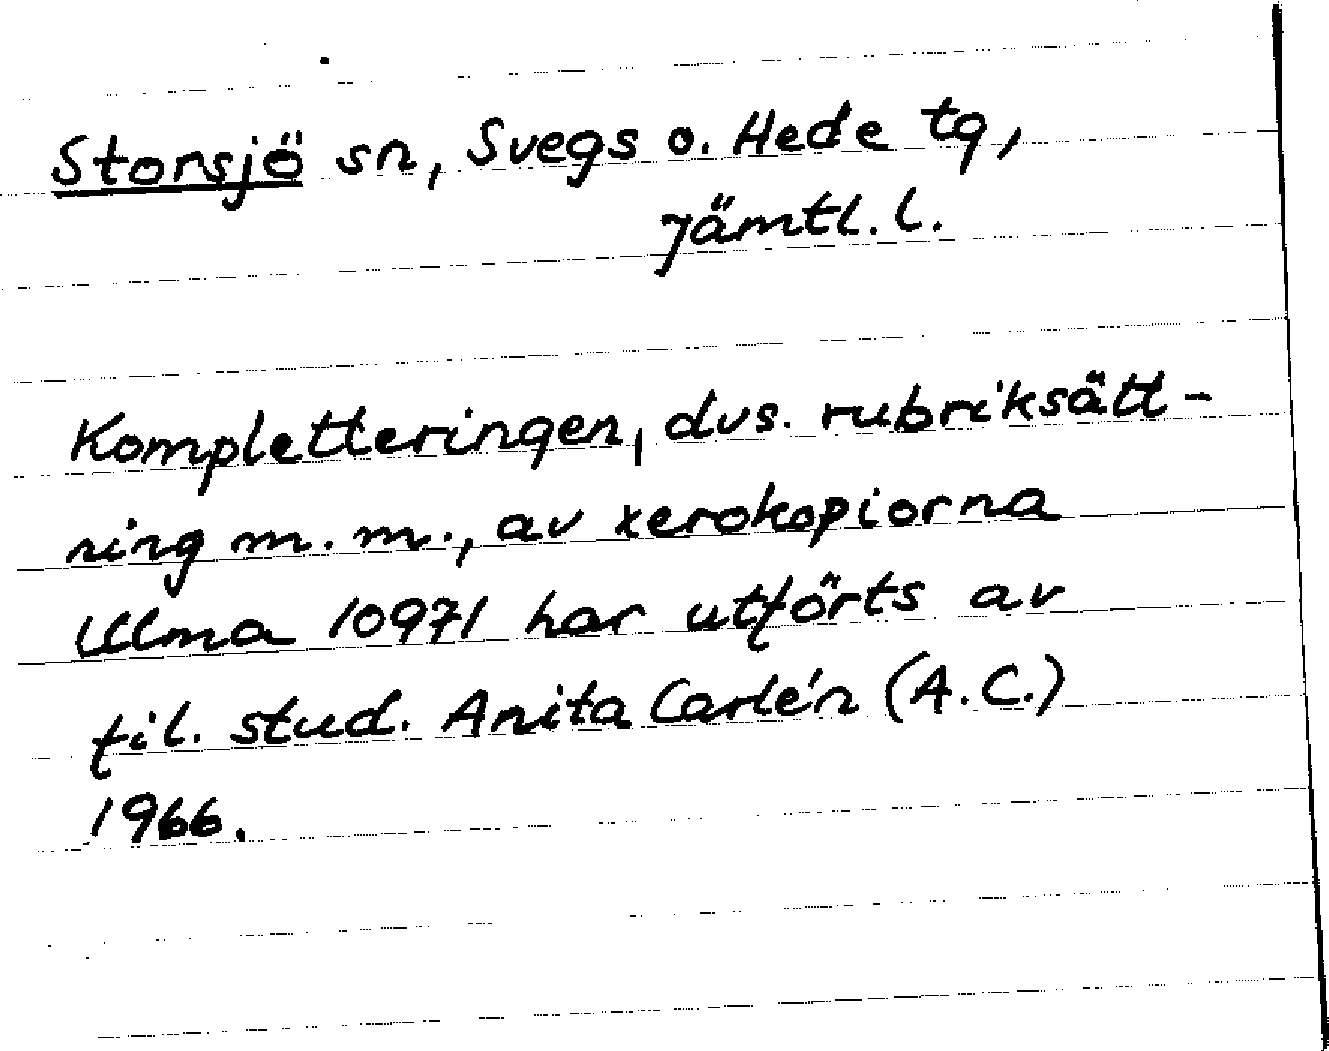 Storsjö sn, Svegs o. Hede tg,
Jämtl. l.
Kompletteringen, dvs. rubriksätt-
ning m. m., av xerokopiorna
Ulma 10971 har utförts av
fil. stud. Anita Carlén (A. C.)
1966.